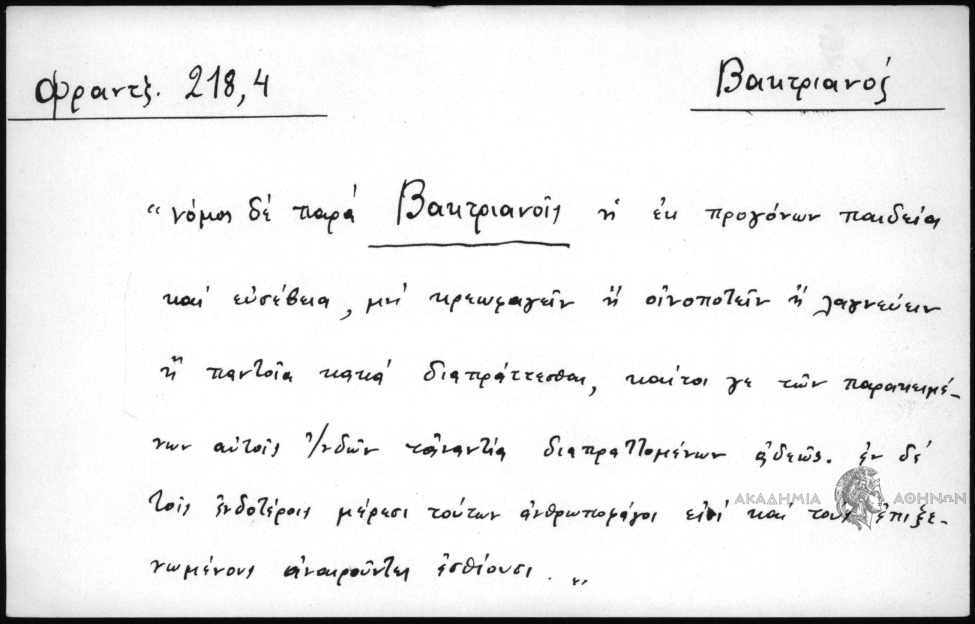 Φραντζ. 218,4
Βακτριανός
"νόμος δέ παρά Βακτριανοῖς ἡ ἐκ προγόνων παιδεία
καί εὐσέβεια, μή κρεωφαγεῖν ἤ οἰνοποτεῖν ἤ λαγνεύειν
ἤ παντοῖα κακά διαπράττεσθαι, καίτοι γε τῶν παρακειμέ-
νων αὐτοῖς Ἰνδῶν τἀναντία διαπραττομένων ἀδεῶς. ἐν δέ
τοῖς ἐνδοτέροις μέρεσι τούτων ἀνθρωποφάγοι εἰσί καί τούς ἐπιξε-
νωμένους ἀναιροῦντες ἐσθίουσι. „
ΑΚΑΔΗΜΙΑ ΑΘΗΝΩΝ